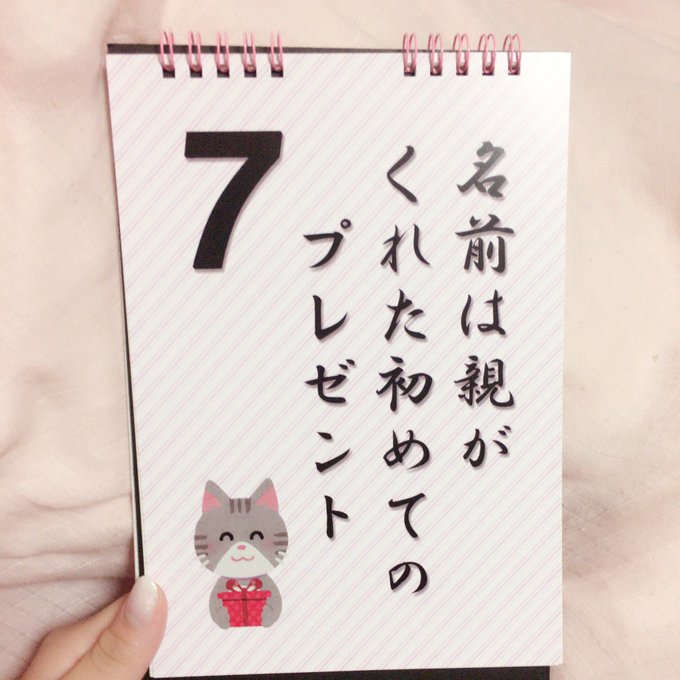 名前は親が
くれた初めての
プレゼント
7